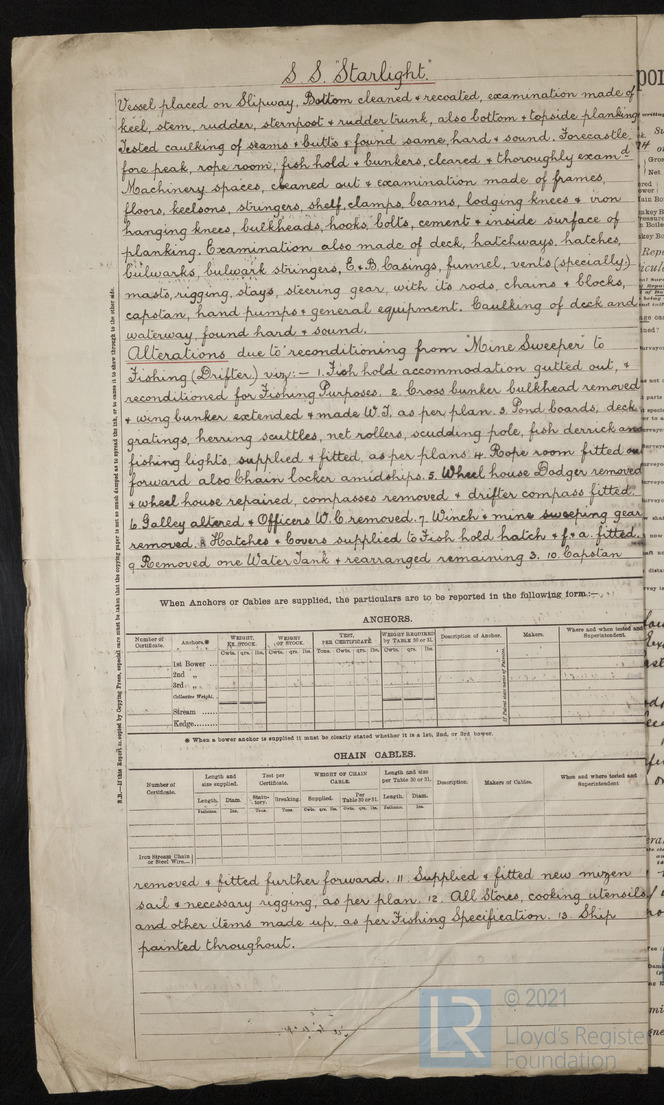 S. S. "Starlight."
Vessel placed on Slipway, Bottom cleaned & recoated, examination made of
keel, stem, rudder, sternpost & rudder trunk, also bottom & topside planking
Tested caulking of seams & butts & found same, hard & sound. Forecastle,
fore peak, rope room, fish hold & bunkers, cleared & thoroughly exam.d
Machinery spaces, cleaned out & examination made of frames,
floors, keelsons, stringers, shelf, clamps, beams, lodging knees & iron
hanging knees, bulkheads, hooks, bolts, cement & inside surface of
planking. Examination also made of deck, hatchways, hatches,
bulwarks, bulwark stringers, E & B. Casings, funnel, vents (specially)
masts, rigging, stays, steering gear, with its rods, chains & blocks,
capstan, hand pumps & general equipment. Caulking of deck and
waterway, found hard & sound.
Alterations due to reconditioning from "Mine Sweeper to
Fishing (Drifter) viz:— 1. Fish hold accommodation gutted out, &
reconditioned for Fishing Purposes. 2. Cross bunker bulkhead removed
& wing bunker extended & made W.T. as per plan. 3. Pond boards, deck
gratings, herring scuttles, net rollers, scudding pole, fish derrick and
fishing lights, supplied & fitted, as per plans. 4. Rope room fitted
forward also Chain locker amidships. 5. Wheel house Dodger removed
& wheel house repaired, compasses removed & drifter compass fitted.
6. Galley altered & Officers W.C. removed. 7. Winch & mine sweeping gear
removed. 8. Hatches & Covers supplied to Fish hold hatch & f. & a. fitted.
9. Removed one Water Tank & rearranged remaining 3. 10. Capstan
When Anchors or Cables are supplied, the particulars are to be reported in the following form:—
ANCHORS.
Number of Certificate. Anchors.* WEIGHT, EX. STOCK. WEIGHT OF STOCK. TEST, PER CERTIFICATE. WEIGHT REQUIRED by TABLE 30 or 31. Description of Anchor. Makers. Where and when tested and Superintendent.
Cwts. qrs. lbs. Cwts. qrs. lbs. Tons. Cwts. qrs. lbs. Cwts. qrs. lbs.
1st Bower ...
2nd "
3rd "
Collective Weight.
Stream ......
Kedge.........
* When a bower anchor is supplied it must be clearly stated whether it is a 1st, 2nd, or 3rd bower.
CHAIN CABLES.
Number of Certificate. Length and size supplied. Test per Certificate. WEIGHT OF CHAIN CABLE. Length and size per Table 30 or 31. Description. Makers of Cables. When and where tested and Superintendent
Length. Diam. Statutory. Breaking. Supplied. Per Table 30 or 31. Length. Diam.
Fathoms. Ins. Tons. Tons. Cwts. qrs. lbs. Cwts. qrs. lbs. Fathoms. Ins.
Iron Stream Chain or Steel Wire...
removed & fitted further forward. 11. Supplied & fitted new mizen
sail & necessary rigging, as per plan. 12. All Stores, cooking utensils
and other items made up, as per Fishing Specification. 13. Ship
painted throughout.
N.B.—If this Report is copied by Copying Press, especial care must be taken that the copying paper is not so much damped as to spread the ink, or to cause it to show through to the other side.
LR
© 2021
Lloyd's Registe
Foundation